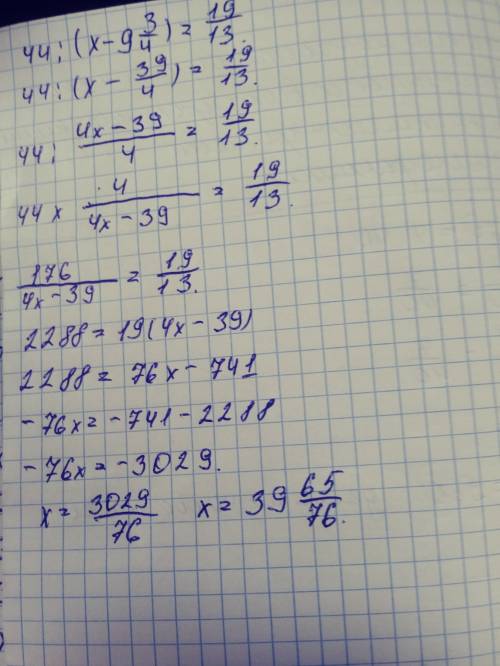 44:(x-9 3/4)=19/13.
44:(x-39/4)=19/13.
44: (4x-39)/4=19/13.
44 x 4/(4x-39)=19/13.
176/(4x-39)=19/13.
2288=19(4x-39)
2288=76x-741
-76x=-741-2288
-76x=-3029.
x=3029/76 x=39 65/76.